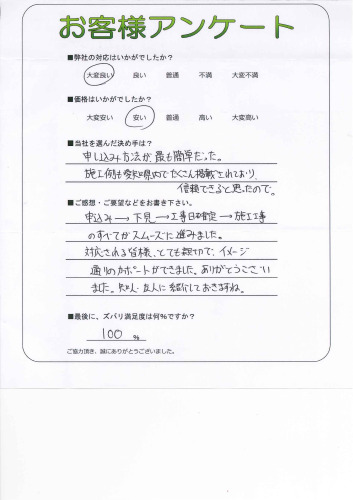 お客様アンケート
■弊社の対応はいかがでしたか?
大変良い 良い 普通 不満 大変不満
■価格はいかがでしたか?
大変安い 安い 普通 高い 大変高い
■当社を選んだ決め手は?
申し込み方法が最も簡単だった。
施工例も愛知県内でたくさん掲載されており、
信頼できると思ったので。
■ご感想・ご要望などをお書き下さい。
申込み→下見→工事日確定→施工工事
のすべてがスムーズに進みました。
対応される皆様、とても親切で、イメージ
通りのカーポートができました。ありがとうござい
ました。知人・友人に紹介しておきますね。
■最後に、ズバリ満足度は何%ですか?
100 %
ご協力頂き、誠にありがとうございました。